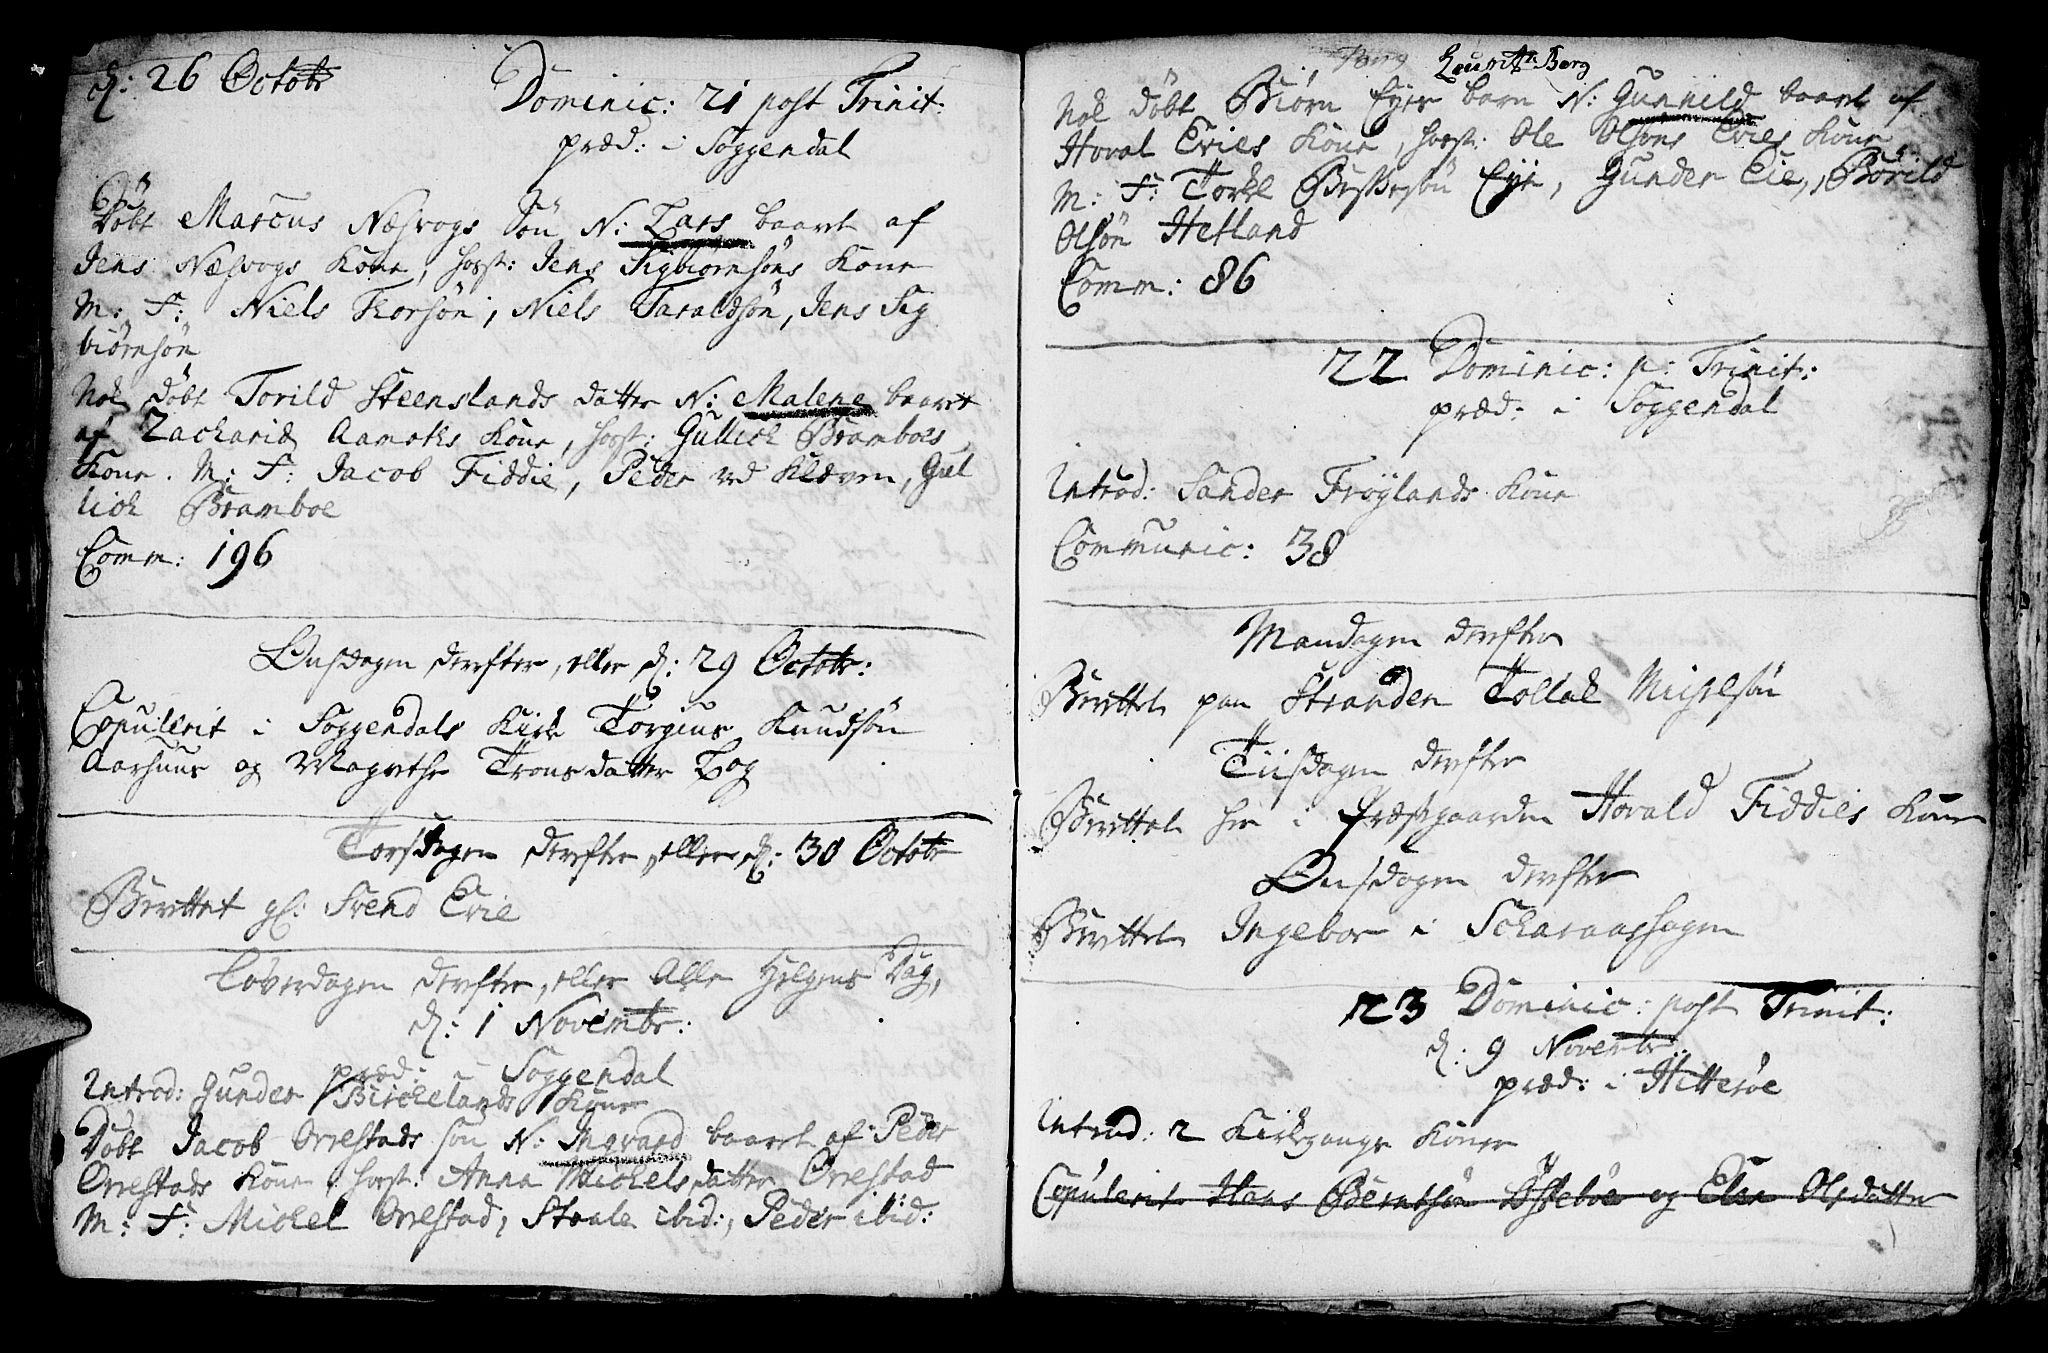 d: 26 Octobr
Dominic: 21 post Trinit:
præd: i Soggendal
Døbt Marcus Næsvogs Søn N: Lars baaret af
Jens Næsvogs Kone, host: Jens Sigbiørnsøns Kone
M: F: Niels Torsøn, Niels Taraldsøn, Jens Sig
biørnsøn
Nok døbt Torild Steenslands datter N: Malene baaret
af Zachariæ Aamots Kone, host: Gullich Bramboes
Kone. M: F: Jacob Fiddie, Peder ved Kleven, Gul
lich Bramboe
Comm: 196
Onsdagen derefter, eller d: 29 Octobr:
Copulerit i Soggendals Kirke Torgius Knudsøn
Aarhuus og Magrethe Tronsdatter Log
Torsdagen derefter, eller d: 30 Octobr
Berettet gl: Svend Evie
Løverdagen derefter, eller Alle Helgens Dag,
d: 1 Novembr:
præd: i Soggendal
Introd: Gunder Birckelands Kone
Døbt Jacob Orrestads søn N: Ingvard baaret af Peder
Orrestads Kone, host: Anna Michelsdatter Orrestad
M: F: Michel Orrestad, Staale ibid:, Peder ibid:
Lauritz Berg
Nok døbt Biørn Eyes barn N: Gunnild baaret af
Hoval Evies Kone, host: Ole Olsøns Evies Kone
M: F: Torkel Eye, Gunder Eie, Borild
Olsøn Hetland
Comm: 86
22 Dominic: p: Trinit:
præd: i Soggendal
Introd: Sander Frøylands Kone
Communic: 38
Mandagen derefter
Berettet paa Stranden Tollak
Tiisdagen derefter
Berettet her i Præstgaarden Hovald Fiddies Kone
Onsdagen derefter
Berettet Ingebor i
23 Dominic: post Trinit:
d: 9 Novembr.
præd: i Hitterøe
Introd: 2 Kirkegangs Koner
Copulerit Hans Berntsøn og Else Olsdatter